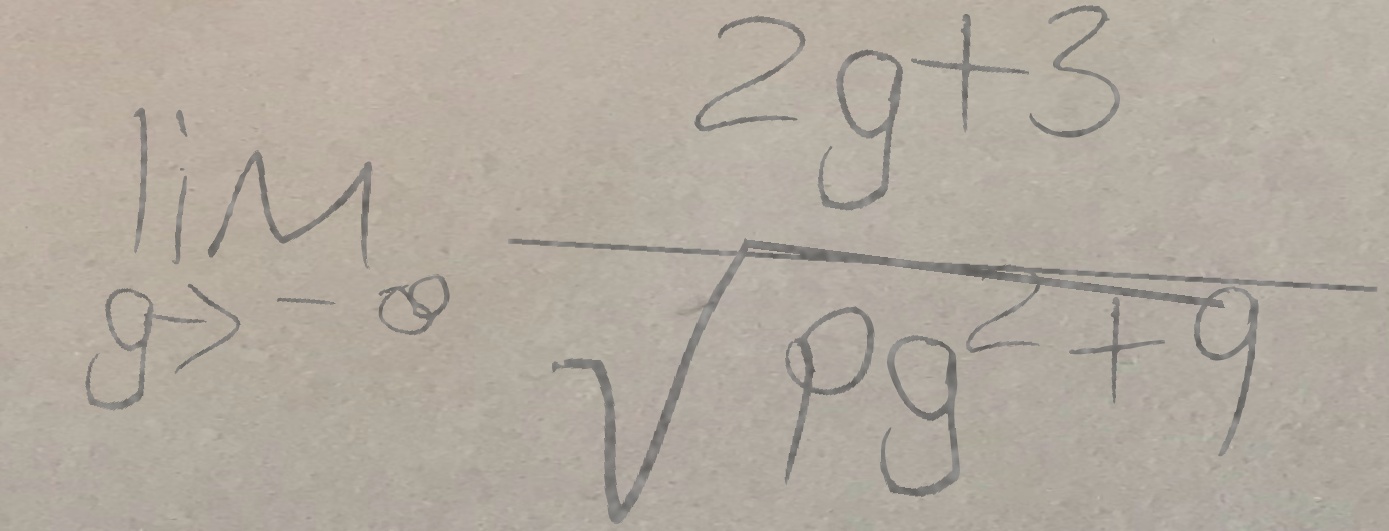 lim g->-∞ (2g+3)/√(pg²+9)